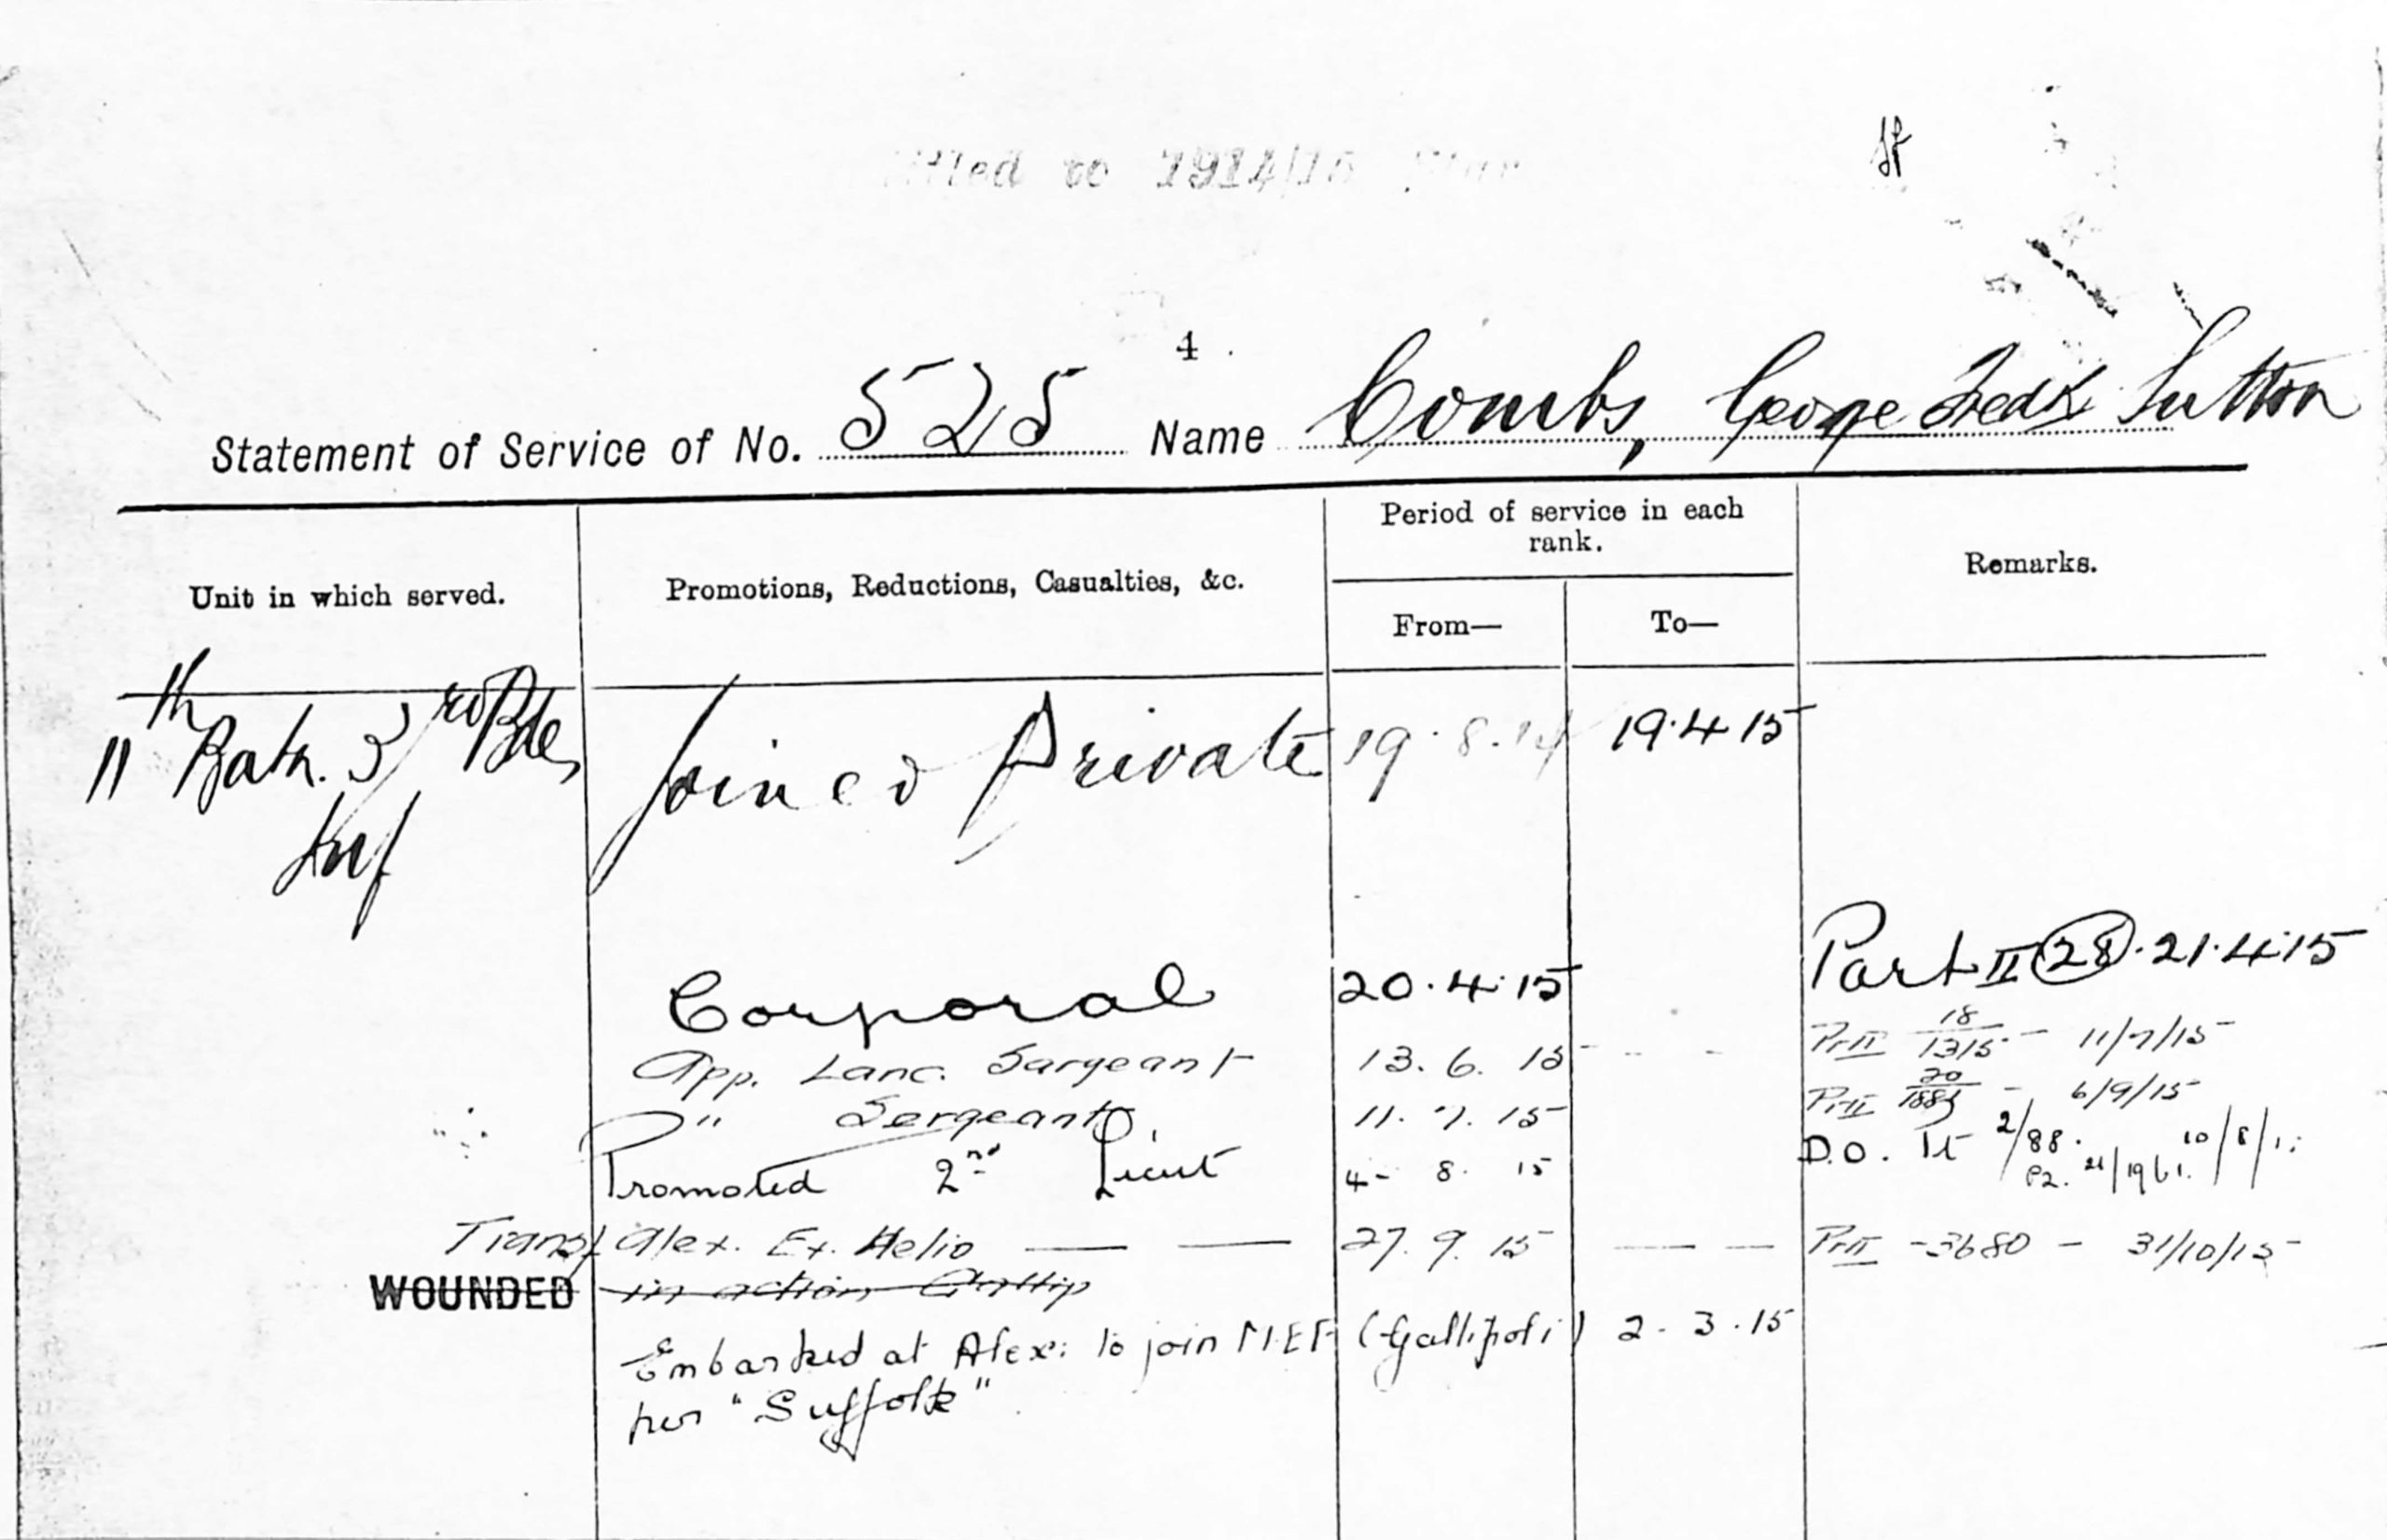 to 1914/15
4
Statement of Service of No. 525 Name Combs, George Fredk Sutton
Unit in which served.
Promotions, Reductions, Casualties, &c.
Period of service in each rank.
From—
To—
Remarks.
11th Batn. 3rd Bde, Joined Private 19.8.14 19.4.15
Inf
Corporal 20.4.15 Part II 28. 21.4.15
App. Lanc. Sargeant 13. 6. 15 - - - Pt II 18/1315 - 11/7/15
" Sergeant 11. 7. 15 Pt II 20/ - 6/9/15
Promoted 2nd Lieut 4- 8. 15 D.O. 2/88. 10/8/
Transf Alex. Ex. Helio — — 27. 9. 15 — — Pt II - 3680 - 31/10/15
WOUNDED in action
Embarked at Alex: to join MEF (Gallipoli) 2. 3. 15
per "Suffolk"